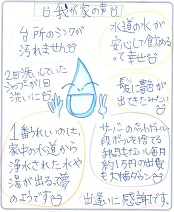 我が家の声
台所のシンクが
汚れません
水道の水が
安心して飲める
って幸せ
2回洗いしていた
シャンプーが1回
洗いに
髪に艶が
出てきたみたい
1番うれしいのは、
家中の水道から
浄水された水や
湯が出る夢
のようです
サーバーのペットボトルや
段ボールを捨てる
手間もない毎月
約1万円の出費
も大幅ダウン
出逢いに感謝です。